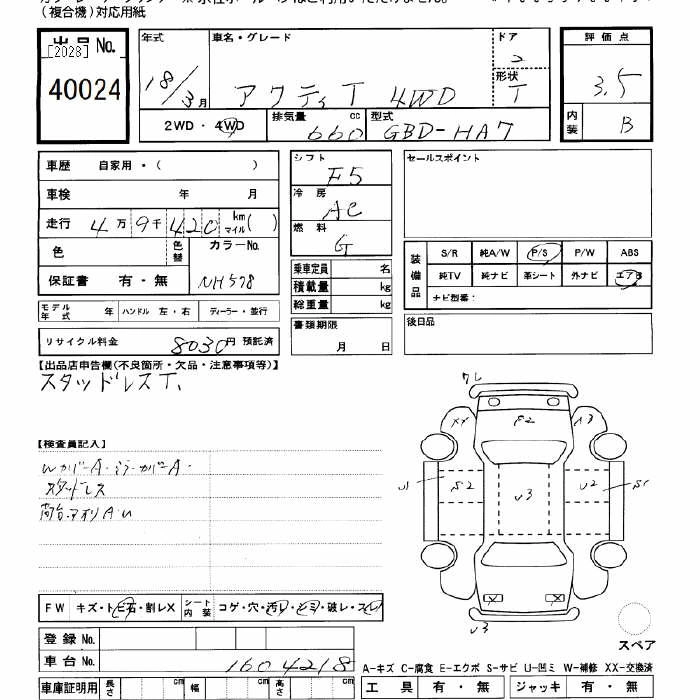 (複合機)対応用紙
出品 No. [2028]
40024
年式 18/3月
車名・グレード アクティT 4WD
ドア 2
形状 T
評価点 3.5
内装 B
2WD・4WD
排気量 660 cc
型式 GBD-HA7
車歴 自家用・( )
車検 年 月
走行 4万9千420 km マイル( )
色 色替 カラーNo. NH578
保証書 有・無
モデル年式 年 ハンドル 左・右 ディーラー・並行
リサイクル料金 8030円 預託済
シフト F5
冷房 AC
燃料 G
乗車定員 名
積載量 kg
総重量 kg
書類期限 月 日
セールスポイント
装備品 S/R 純A/W P/S P/W ABS
純TV 純ナビ 革シート 外ナビ エアB
ナビ型番:
後日品
【出品店申告欄(不良箇所・欠品・注意事項等)】
スタッドレスT.
【検査員記入】
スタッドレス
荷台.アオリA.U
ワレ
XX
A3
U1
S2
U3
U2
S1
U3
スペア
FW キズ・トビ石・割レX シート内装 コゲ・穴・汚レ・シミ・破レ・スレ
登録 No.
車台 No. 1604218
車庫証明用 長さ cm 幅 cm 高さ cm
A-キズ C-腐食 E-エクボ S-サビ U-凹ミ W-補修 XX-交換済
工具 有・無 ジャッキ 有・無